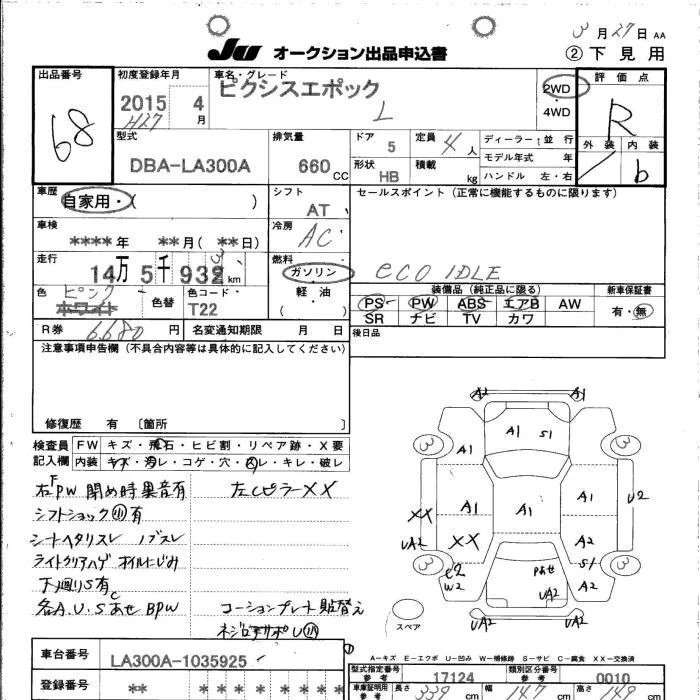 3月27日 AA
JU オークション出品申込書 ②下見用
出品番号 初度登録年月 車名・グレード 評価点
68 2015 4月 ピクシスエポック 2WD R
H27 L 4WD
外装 内装
型式 排気量 ドア 定員 4人 ディーラー・並行
DBA-LA300A 660CC 5 モデル年式 年 b
形状 HB 積載 kg ハンドル 左・右
車歴 シフト セールスポイント(正常に機能するものに限ります)
自家用・( ) AT
車検 冷房
****年 **月(**日) AC
走行 燃料
14万5千932km ガソリン eco IDLE
色 ピンク 色替 色コード 軽・油 装備品(純正品に限る) 新車保証書
ホワイト T22 PS PW ABS エアB AW 有・無
SR ナビ TV カワ
R券 6680円 名変通知期限 月 日 後日品
注意事項申告欄(不具合内容等は具体的に記入してください)
修復歴 有 [箇所 ]
検査員記入欄 FW キズ・飛石・ヒビ割・リペア跡・X要
内装 キズ・汚レ・コゲ・穴・凹レ・キレ・破レ
右F PW 閉め時異音有 左Cピラー XX
シフトショック小有
シートヘタリスレ ノブスレ
ライトクリアハゲ オイルにじみ
下廻りS有
各A.U.S あせ BPW コーションプレート貼替え
A2 A1
3 A1 S1 3
A1
A1 A1 A1 U2
XX
UA2 XX A2
3 S1 3
W2 Pあせ UA2 A2
UA2 UA2
スペア
A－キズ E－エクボ U－凹み W－補修跡 S－サビ C－腐食 XX－交換済
車台番号 LA300A-1035925
型式指定番号参考 17124 類別区分番号参考 0010
登録番号 ** ****
車庫証明用参考 長さ 339cm 幅 147cm 高さ cm